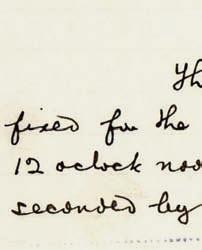 Th
fixed for the
12 oclock noo
seconded by